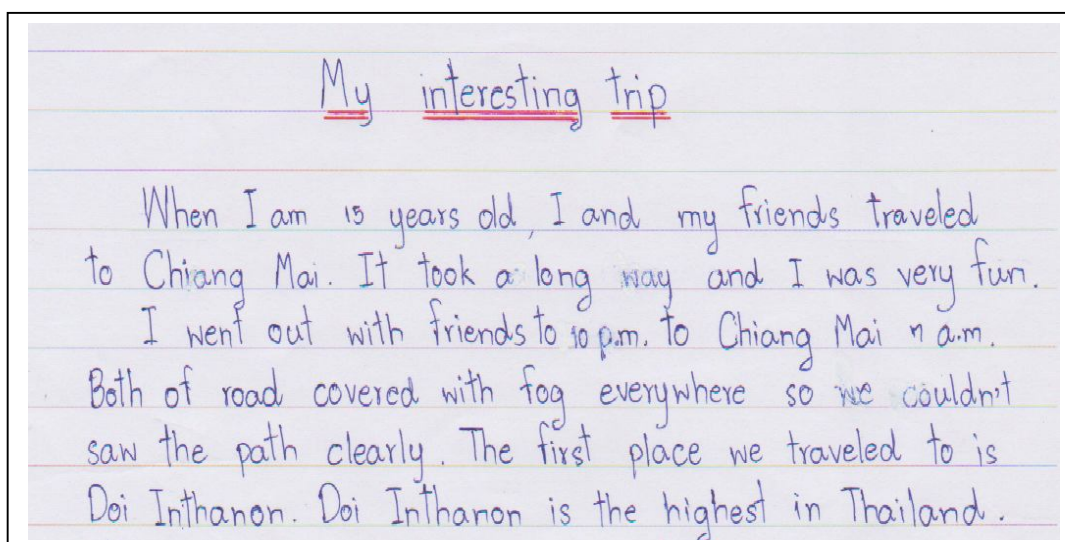 My interesting trip
When I am 15 years old, I and my friends traveled
to Chiang Mai. It took a long way and I was very fun.
I went out with friends to 10 p.m. to Chiang Mai 11 a.m.
Both of road covered with fog everywhere so we couldn't
saw the path clearly. The first place we traveled to is
Doi Inthanon. Doi Inthanon is the highest in Thailand.